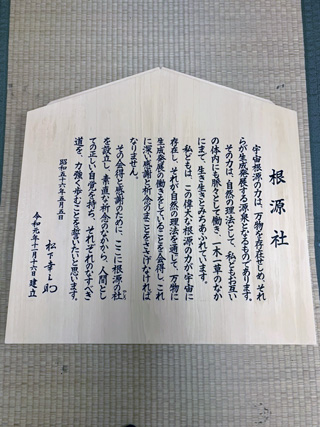 根源社
宇宙根源の力は、万物を存在せしめ、それ
らが生成発展する源泉となるものであります。
その力は、自然の理法として、私どもお互い
の体内にも脈々として働き、一木一草のなか
にまで、生き生きとみちあふれています。
私どもは、この偉大な根源の力が宇宙に
存在し、それが自然の理法を通じて、万物に
生成発展の働きをしていることを会得し、これ
に深い感謝と祈念のまことをささげなければ
なりません。
その会得と感謝のために、ここに根源の社
を設立し、素直な祈念のなかから、人間とし
ての正しい自覚を持ち、それぞれのなすべき
道を、力強く歩むことを誓いたいと思います。
昭和五十六年五月五日
松下幸之助
令和元年十一月十六日建立